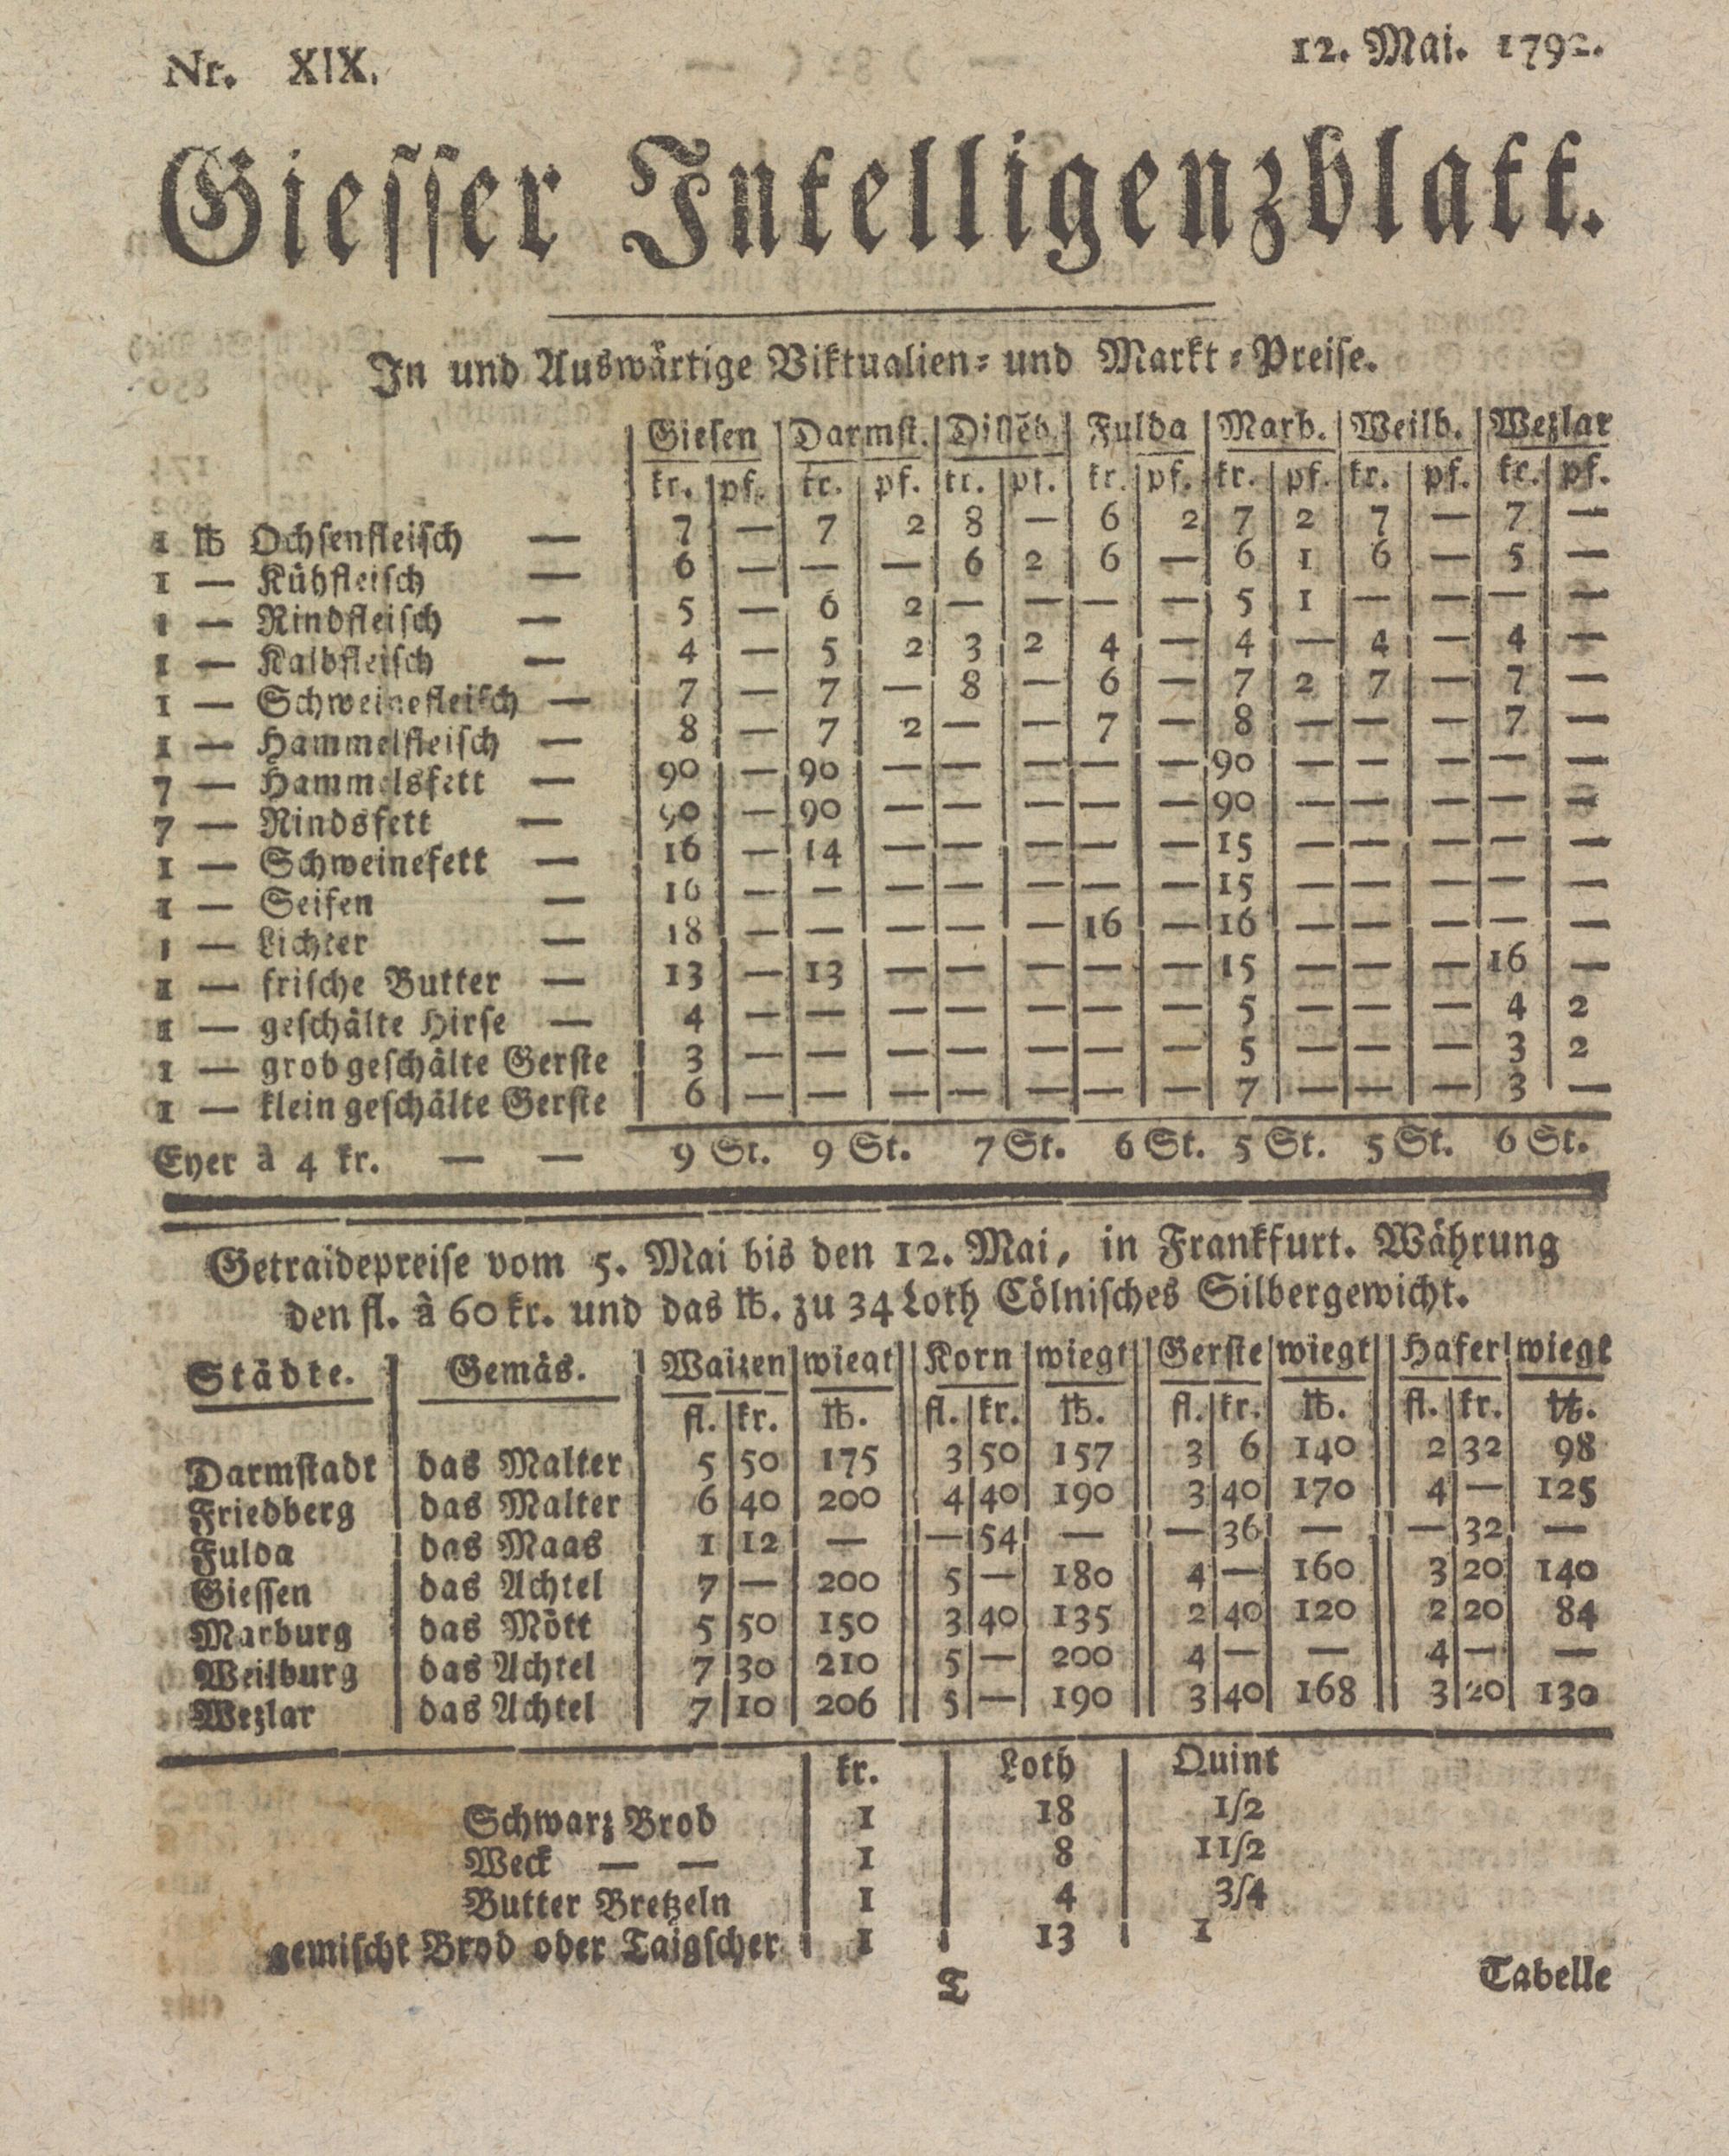 Nr. XIX. 12. Mai. 1792.
Giesser Intelligenzblatt.
In und Auswärtige Viktualien- und Markt-Preise.
Giesen Darmst. Dillēb. Fulda Marb. Weilb. Wezlar
kr. pf. kr. pf. kr. pf. kr. pf. kr. pf. kr. pf. kr. pf.
1 ℔ Ochsenfleisch — 7 — 7 2 8 — 6 2 7 2 7 — 7 —
1 — Kühfleisch — 6 — — — 6 2 6 — 6 1 6 — 5 —
1 — Rindfleisch — 5 — 6 2 — — — — 5 1 — — — —
1 — Kalbfleisch — 4 — 5 2 3 2 4 — 4 — 4 — 4 —
1 — Schweinefleisch — 7 — 7 — 8 — 6 — 7 2 7 — 7 —
1 — Hammelfleisch — 8 — 7 2 — — 7 — 8 — — — 7 —
7 — Hammelsfett — 90 — 90 — — — — — 90 — — — — —
7 — Rindsfett — 90 — 90 — — — — — 90 — — — — —
1 — Schweinefett — 16 — 14 — — — — — 15 — — — — —
1 — Seifen — 16 — — — — — — — 15 — — — — —
1 — Lichter — 18 — — — — — 16 — 16 — — — — —
1 — frische Butter — 13 — 13 — — — — — 15 — — — 16 —
1 — geschälte Hirse — 4 — — — — — — — 5 — — — 4 2
1 — grob geschälte Gerste 3 — — — — — — — 5 — — — 3 2
1 — klein geschälte Gerste 6 — — — — — — — 7 — — — 3 —
Eyer à 4 kr. — — 9 St. 9 St. 7 St. 6 St. 5 St. 5 St. 6 St.
Getraidepreise vom 5. Mai bis den 12. Mai, in Frankfurt. Währung
den fl. à 60 kr. und das ℔. zu 34 Loth Cölnisches Silbergewicht.
Städte. Gemäs. Waizen wiegt Korn wiegt Gerste wiegt Hafer wiegt
fl. kr. ℔. fl. kr. ℔. fl. kr. ℔. fl. kr. ℔.
Darmstadt das Malter 5 50 175 3 50 157 3 6 140 2 32 98
Friedberg das Malter 6 40 200 4 40 190 3 40 170 4 — 125
Fulda das Maas 1 12 — — 54 — — 36 — — 32 —
Giessen das Achtel 7 — 200 5 — 180 4 — 160 3 20 140
Marburg das Mött 5 50 150 3 40 135 2 40 120 2 20 84
Weilburg das Achtel 7 30 210 5 — 200 4 — — 4 — —
Wezlar das Achtel 7 10 206 5 — 190 3 40 168 3 20 130
kr. Loth Quint
Schwarz Brod 1 18 1/2
Weck — — 1 8 1 1/2
Butter Bretzeln 1 4 3/4
gemischt Brod oder Taigscher 1 13 1
T Tabelle